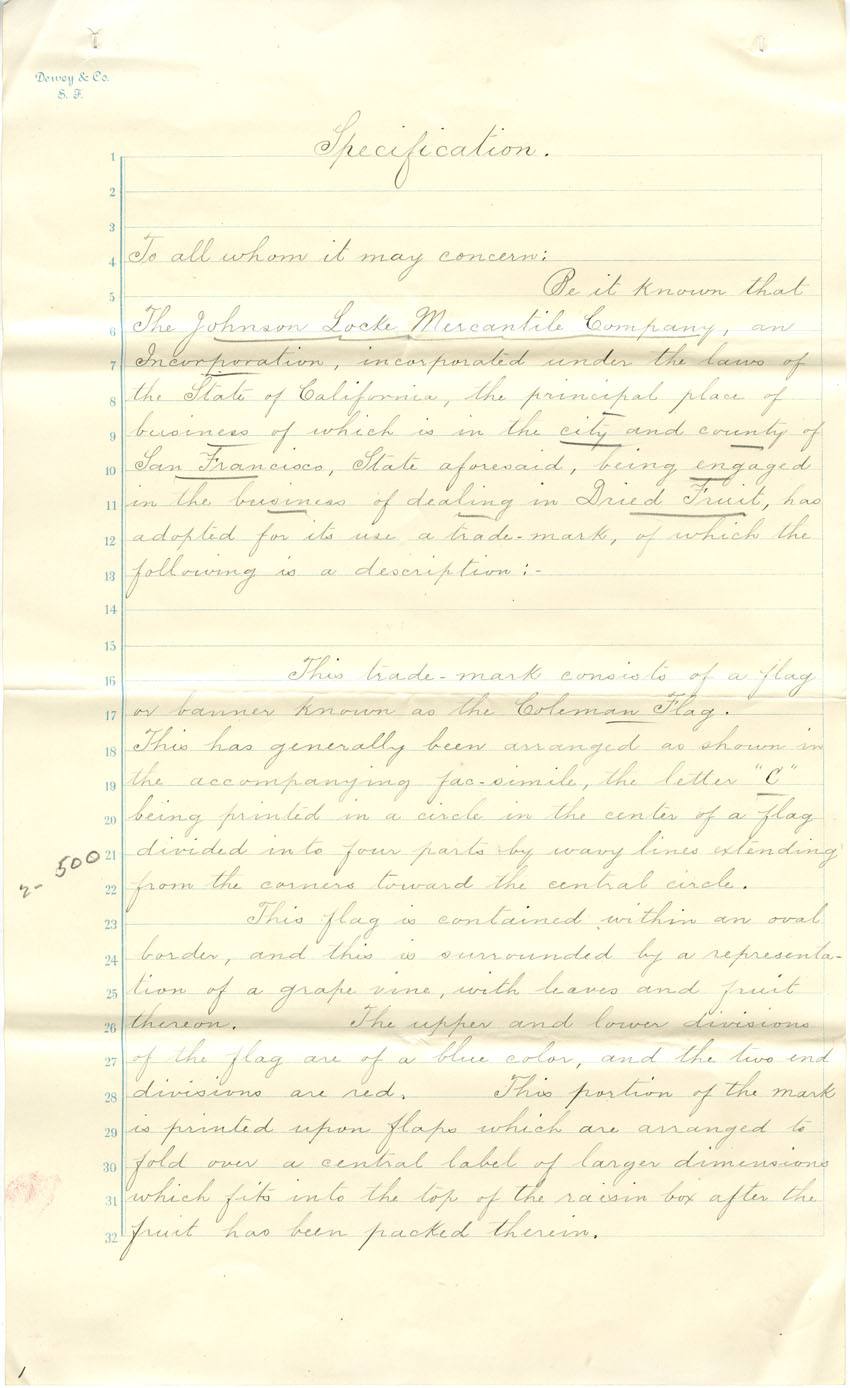 Dewey & Co.
S. F.
Specification.
1
2
3
4 To all whom it may concern:
5 Be it known that
6 The Johnson Locke Mercantile Company, an
7 Incorporation, incorporated under the laws of
8 the State of California, the principal place of
9 business of which is in the city and county of
10 San Francisco, State aforesaid, being engaged
11 in the business of dealing in Dried Fruit, has
12 adopted for its use a trade-mark, of which the
13 following is a description:-
14
15
16 This trade-mark consists of a flag
17 or banner known as the Coleman Flag.
18 This has generally been arranged as shown in
19 the accompanying fac-simile, the letter "C"
20 being printed in a circle in the center of a flag
21 divided into four parts by wavy lines extending
2- 500
22 from the corners toward the central circle.
23 This flag is contained within an oval
24 border, and this is surrounded by a representa-
25 tion of a grape vine, with leaves and fruit
26 thereon. The upper and lower divisions
27 of the flag are of a blue color, and the two end
28 divisions are red. This portion of the mark
29 is printed upon flaps which are arranged to
30 fold over a central label of larger dimensions
31 which fits into the top of the raisin box after the
32 fruit has been packed therein.
1